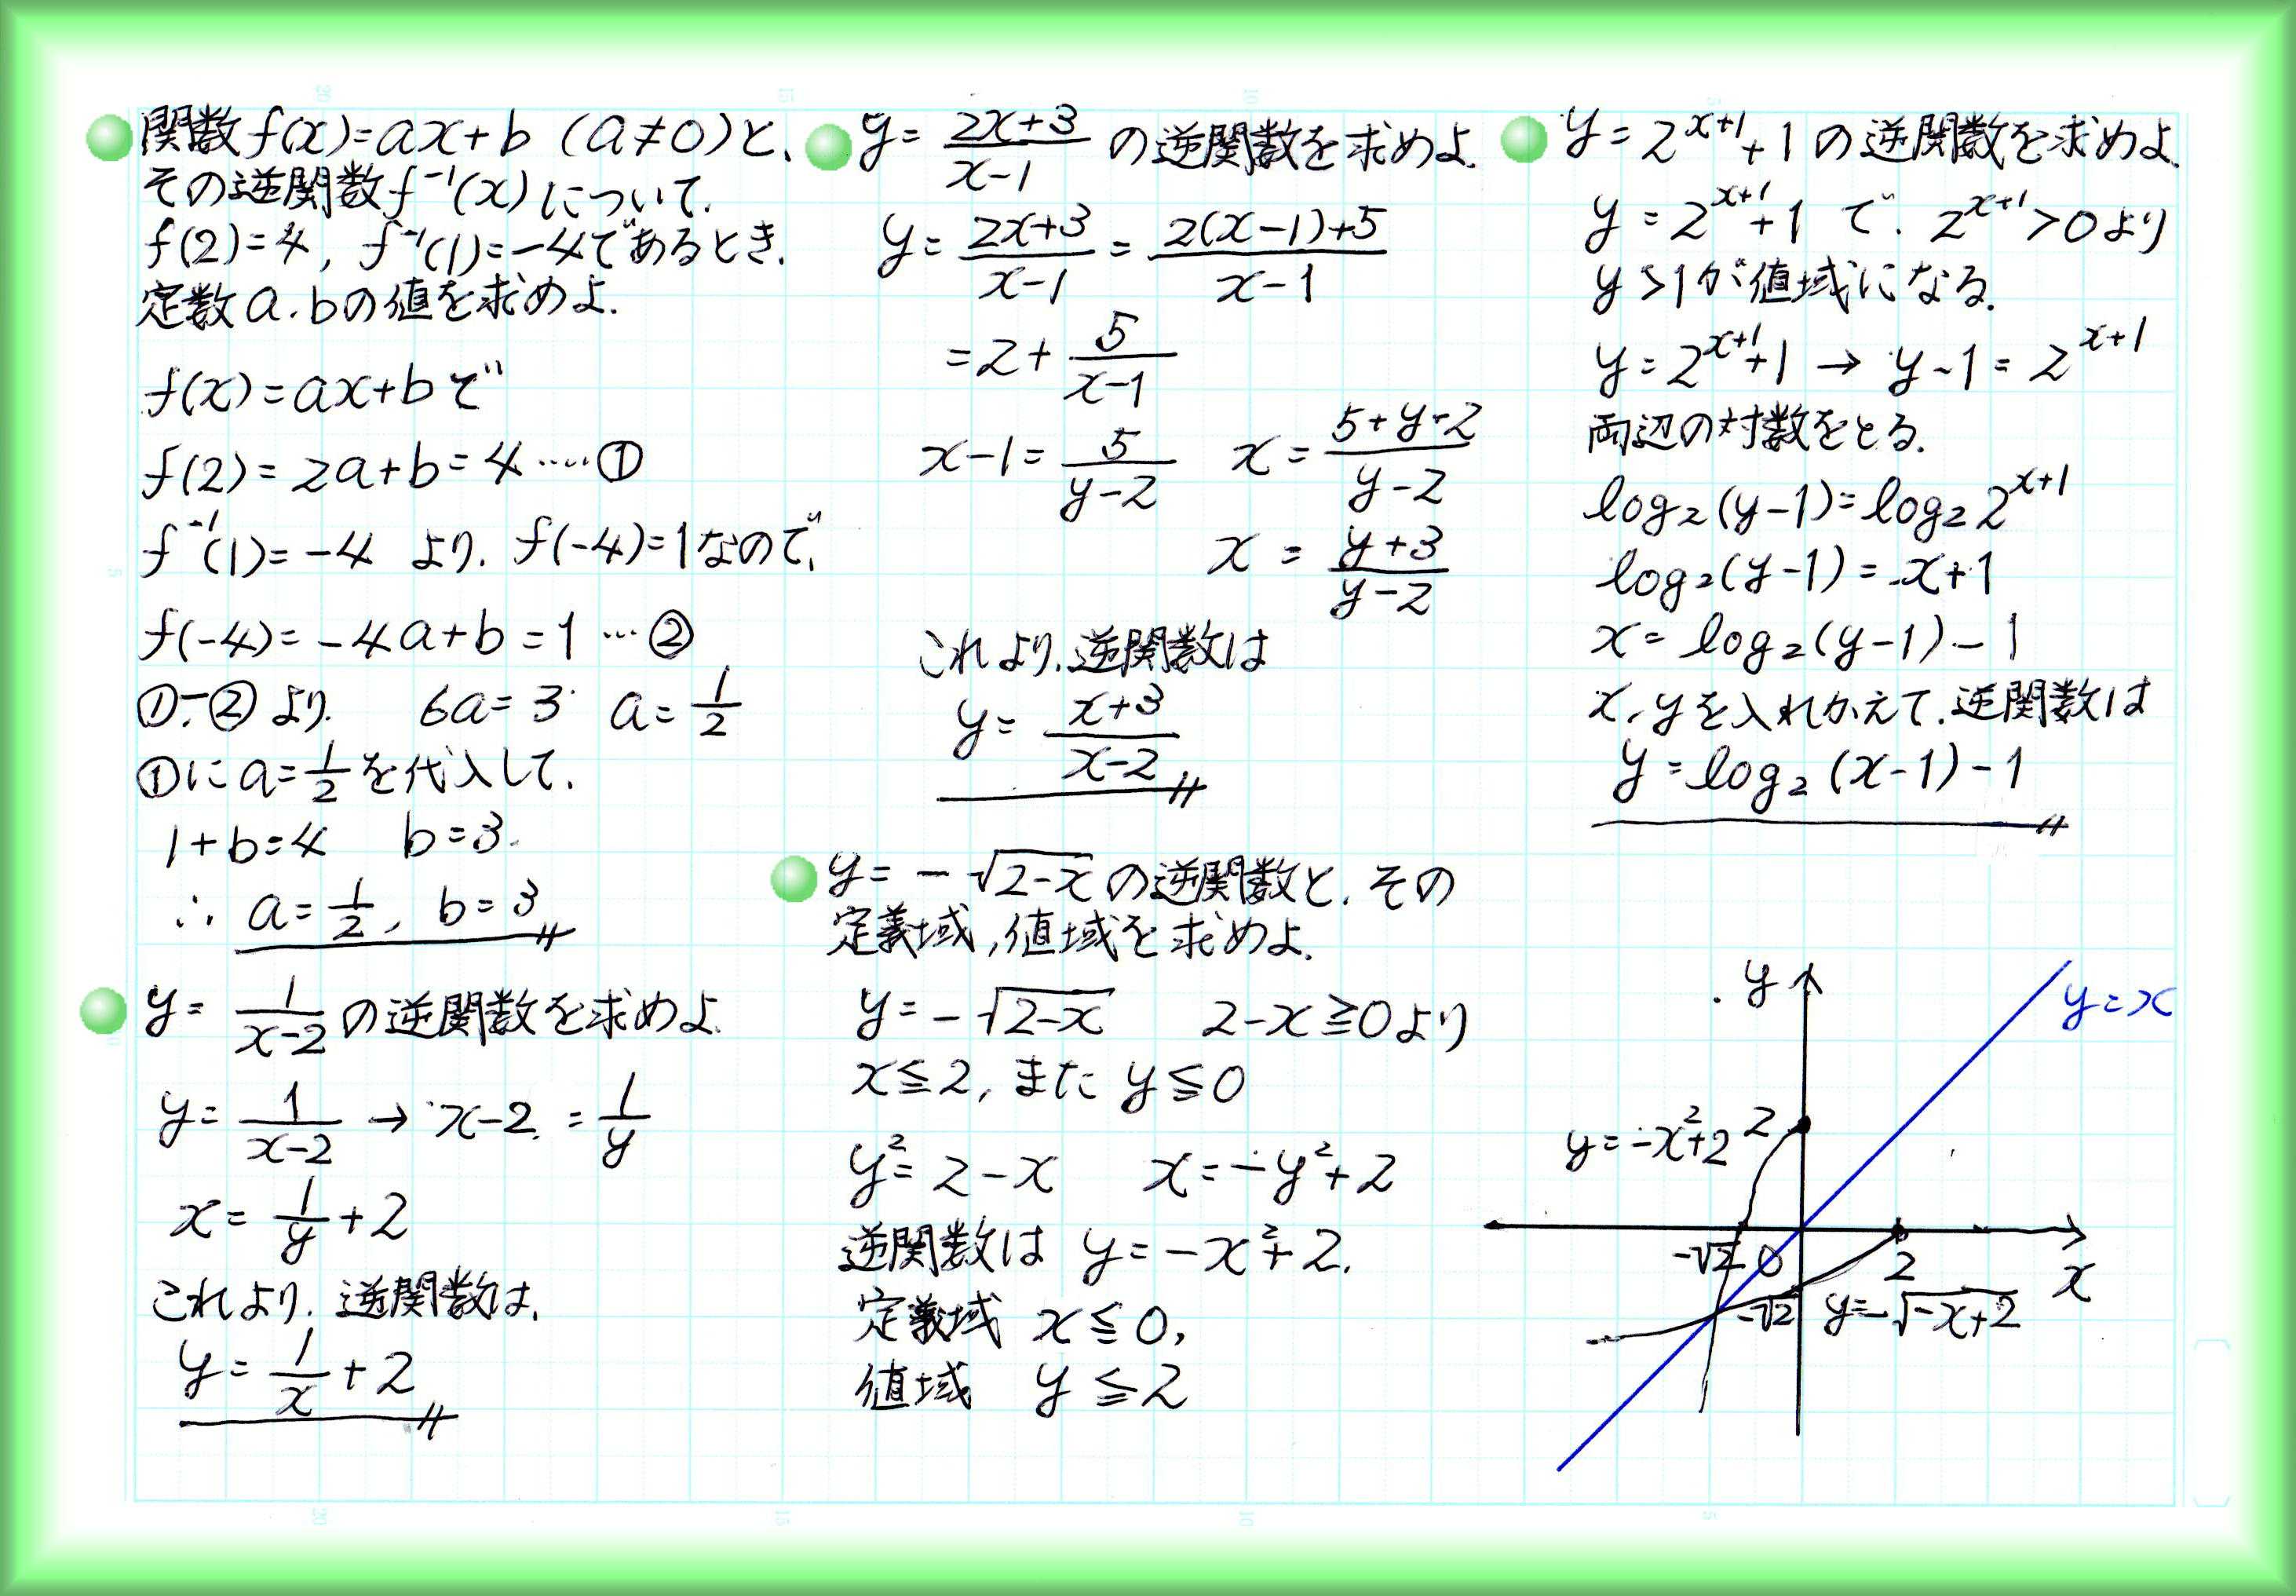 関数 f(x)=ax+b (a≠0)と、
その逆関数 f⁻¹(x)について、
f(2)=4, f⁻¹(1)=-4であるとき、
定数 a, bの値を求めよ.
f(x)=ax+bで
f(2)=2a+b=4 ……①
f⁻¹(1)=-4 より, f(-4)=1なので,
f(-4)=-4a+b=1 …②
①-②より 6a=3 a=1/2
①に a=1/2を代入して,
1+b=4 b=3.
∴ a=1/2, b=3
y=1/(x-2)の逆関数を求めよ.
y=1/(x-2) → x-2=1/y
x=1/y+2
これより, 逆関数は,
y=1/x+2
y=(2x+3)/(x-1) の逆関数を求めよ.
y=(2x+3)/(x-1)=(2(x-1)+5)/(x-1)
=2+5/(x-1)
x-1=5/(y-2) x=(5+y-2)/(y-2)
x=(y+3)/(y-2)
これより, 逆関数は
y=(x+3)/(x-2)
y=-√(2-x)の逆関数と, その
定義域, 値域を求めよ.
y=-√(2-x) 2-x≧0より
x≦2, また y≦0
y²=2-x x=-y²+2
逆関数は y=-x²+2.
定義域 x≦0,
値域 y≦2
y=2^(x+1)+1 の逆関数を求めよ.
y=2^(x+1)+1 で, 2^(x+1)>0より
y>1が値域になる.
y=2^(x+1)+1 → y-1=2^(x+1)
両辺の対数をとる.
log₂(y-1)=log₂2^(x+1)
log₂(y-1)=x+1
x=log₂(y-1)-1
x, yを入れかえて, 逆関数は
y=log₂(x-1)-1
y
y=x
y=-x²+2 2
-√2 0 2 x
-√2 y=-√(-x+2)